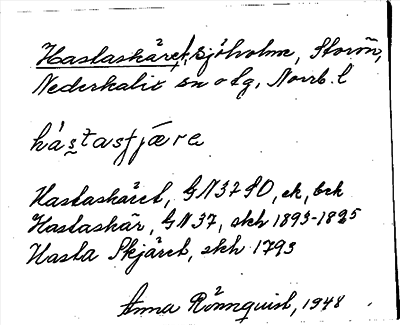 Hastaskäret, sjöholme, Storön,
Nederkalix sn o tg, Norrb. l
hástasfjære
Hastaskäret, GN37SO, ek, bck
Hastaskär, GN37, skh 1893-1825
Hasta Skjäret, skh 1793
Anna Rönnquist, 1948